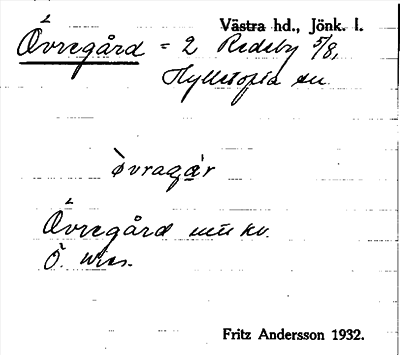 Västra hd., Jönk. l.
Övregård = 2 Redeby 5/8,
Hylletofta sn
òvragár
Övregård
Ö.
Fritz Andersson 1932.